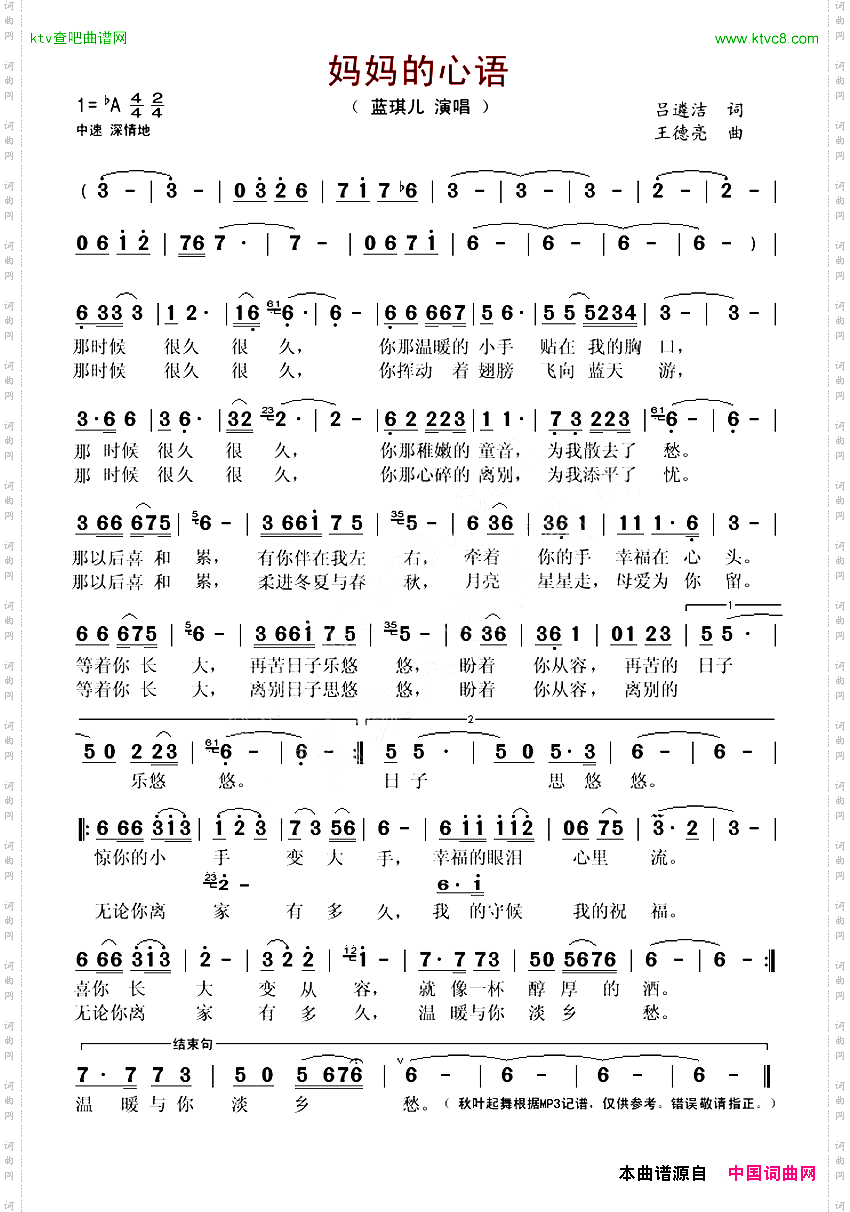 ktv查吧曲谱网 www.ktvc8.com
妈妈的心语
1=♭A 4/4 2/4 （ 蓝琪儿 演唱 ） 吕遴洁 词
中速 深情地 王德亮 曲
( 3 - | 3 - | 0 3 2 6 | 7 1 7 ♭6 | 3 - | 3 - | 3 - | 2 - | 2 - |
0 6 1 2 | 7 6 7 · | 7 - | 0 6 7 1 | 6 - | 6 - | 6 - | 6 - ) |
6 3 3 3 | 1 2 · | 1 6 61 6 · | 6 - | 6 6 6 6 7 | 5 6 · | 5 5 5 2 3 4 | 3 - | 3 - |
那时候 很久 很 久， 你那温暖的 小手 贴在 我的胸 口，
那时候 很久 很 久， 你挥动 着 翅膀 飞向 蓝天 游，
3 · 6 6 | 3 6 · | 3 2 23 2 · | 2 - | 6 2 2 2 3 | 1 1 · | 7 3 2 2 3 | 61 6 - | 6 - |
那 时候 很久 很 久， 你那稚嫩的 童音， 为我散去了 愁。
那 时候 很久 很 久， 你那心碎的 离别， 为我添平了 忧。
3 6 6 6 7 5 | 5 6 - | 3 6 6 1 7 5 | 35 5 - | 6 3 6 | 3 6 1 | 1 1 1 · 6 | 3 - |
那以后喜 和 累， 有你伴在我左 右， 牵着 你的手 幸福在 心 头。
那以后喜 和 累， 柔进冬夏与春 秋， 月亮 星星走， 母爱为 你 留。
1
6 6 6 7 5 | 5 6 - | 3 6 6 1 7 5 | 35 5 - | 6 3 6 | 3 6 1 | 0 1 2 3 | 5 5 · |
等着你 长 大， 再苦日子乐悠 悠， 盼着 你从容， 再苦的 日子
等着你 长 大， 离别日子思悠 悠， 盼着 你从容， 离别的
2
5 0 2 2 3 | 61 6 - | 6 - :‖ 5 5 · | 5 0 5 · 3 | 6 - | 6 - |
乐悠 悠。 日 子 思 悠 悠。
‖: 6 6 6 3 1 3 | 1 2 3 | 7 3 5 6 | 6 - | 6 1 1 1 1 2 | 0 6 7 5 | 3 · 2 | 3 - |
惊你的小 手 变 大 手， 幸福的眼泪 心里 流。
23 2 - 6 · 1
无论你离 家 有 多 久， 我 的守候 我的祝 福。
6 6 6 3 1 3 | 2 - | 3 2 2 | 12 1 - | 7 · 7 7 3 | 5 0 5 6 7 6 | 6 - | 6 - :‖
喜你 长 大 变 从 容， 就 像一杯 醇 厚 的 酒。
无论你离 家 有 多 久， 温 暖与你 淡 乡 愁。
结束句
7 · 7 7 3 | 5 0 | 5 6 7 6 | 6 - | 6 - | 6 - | 6 - ‖
温 暖与你 淡 乡 愁。（ 秋叶起舞根据MP3记谱，仅供参考。错误敬请指正。）
本曲谱源自 中国词曲网